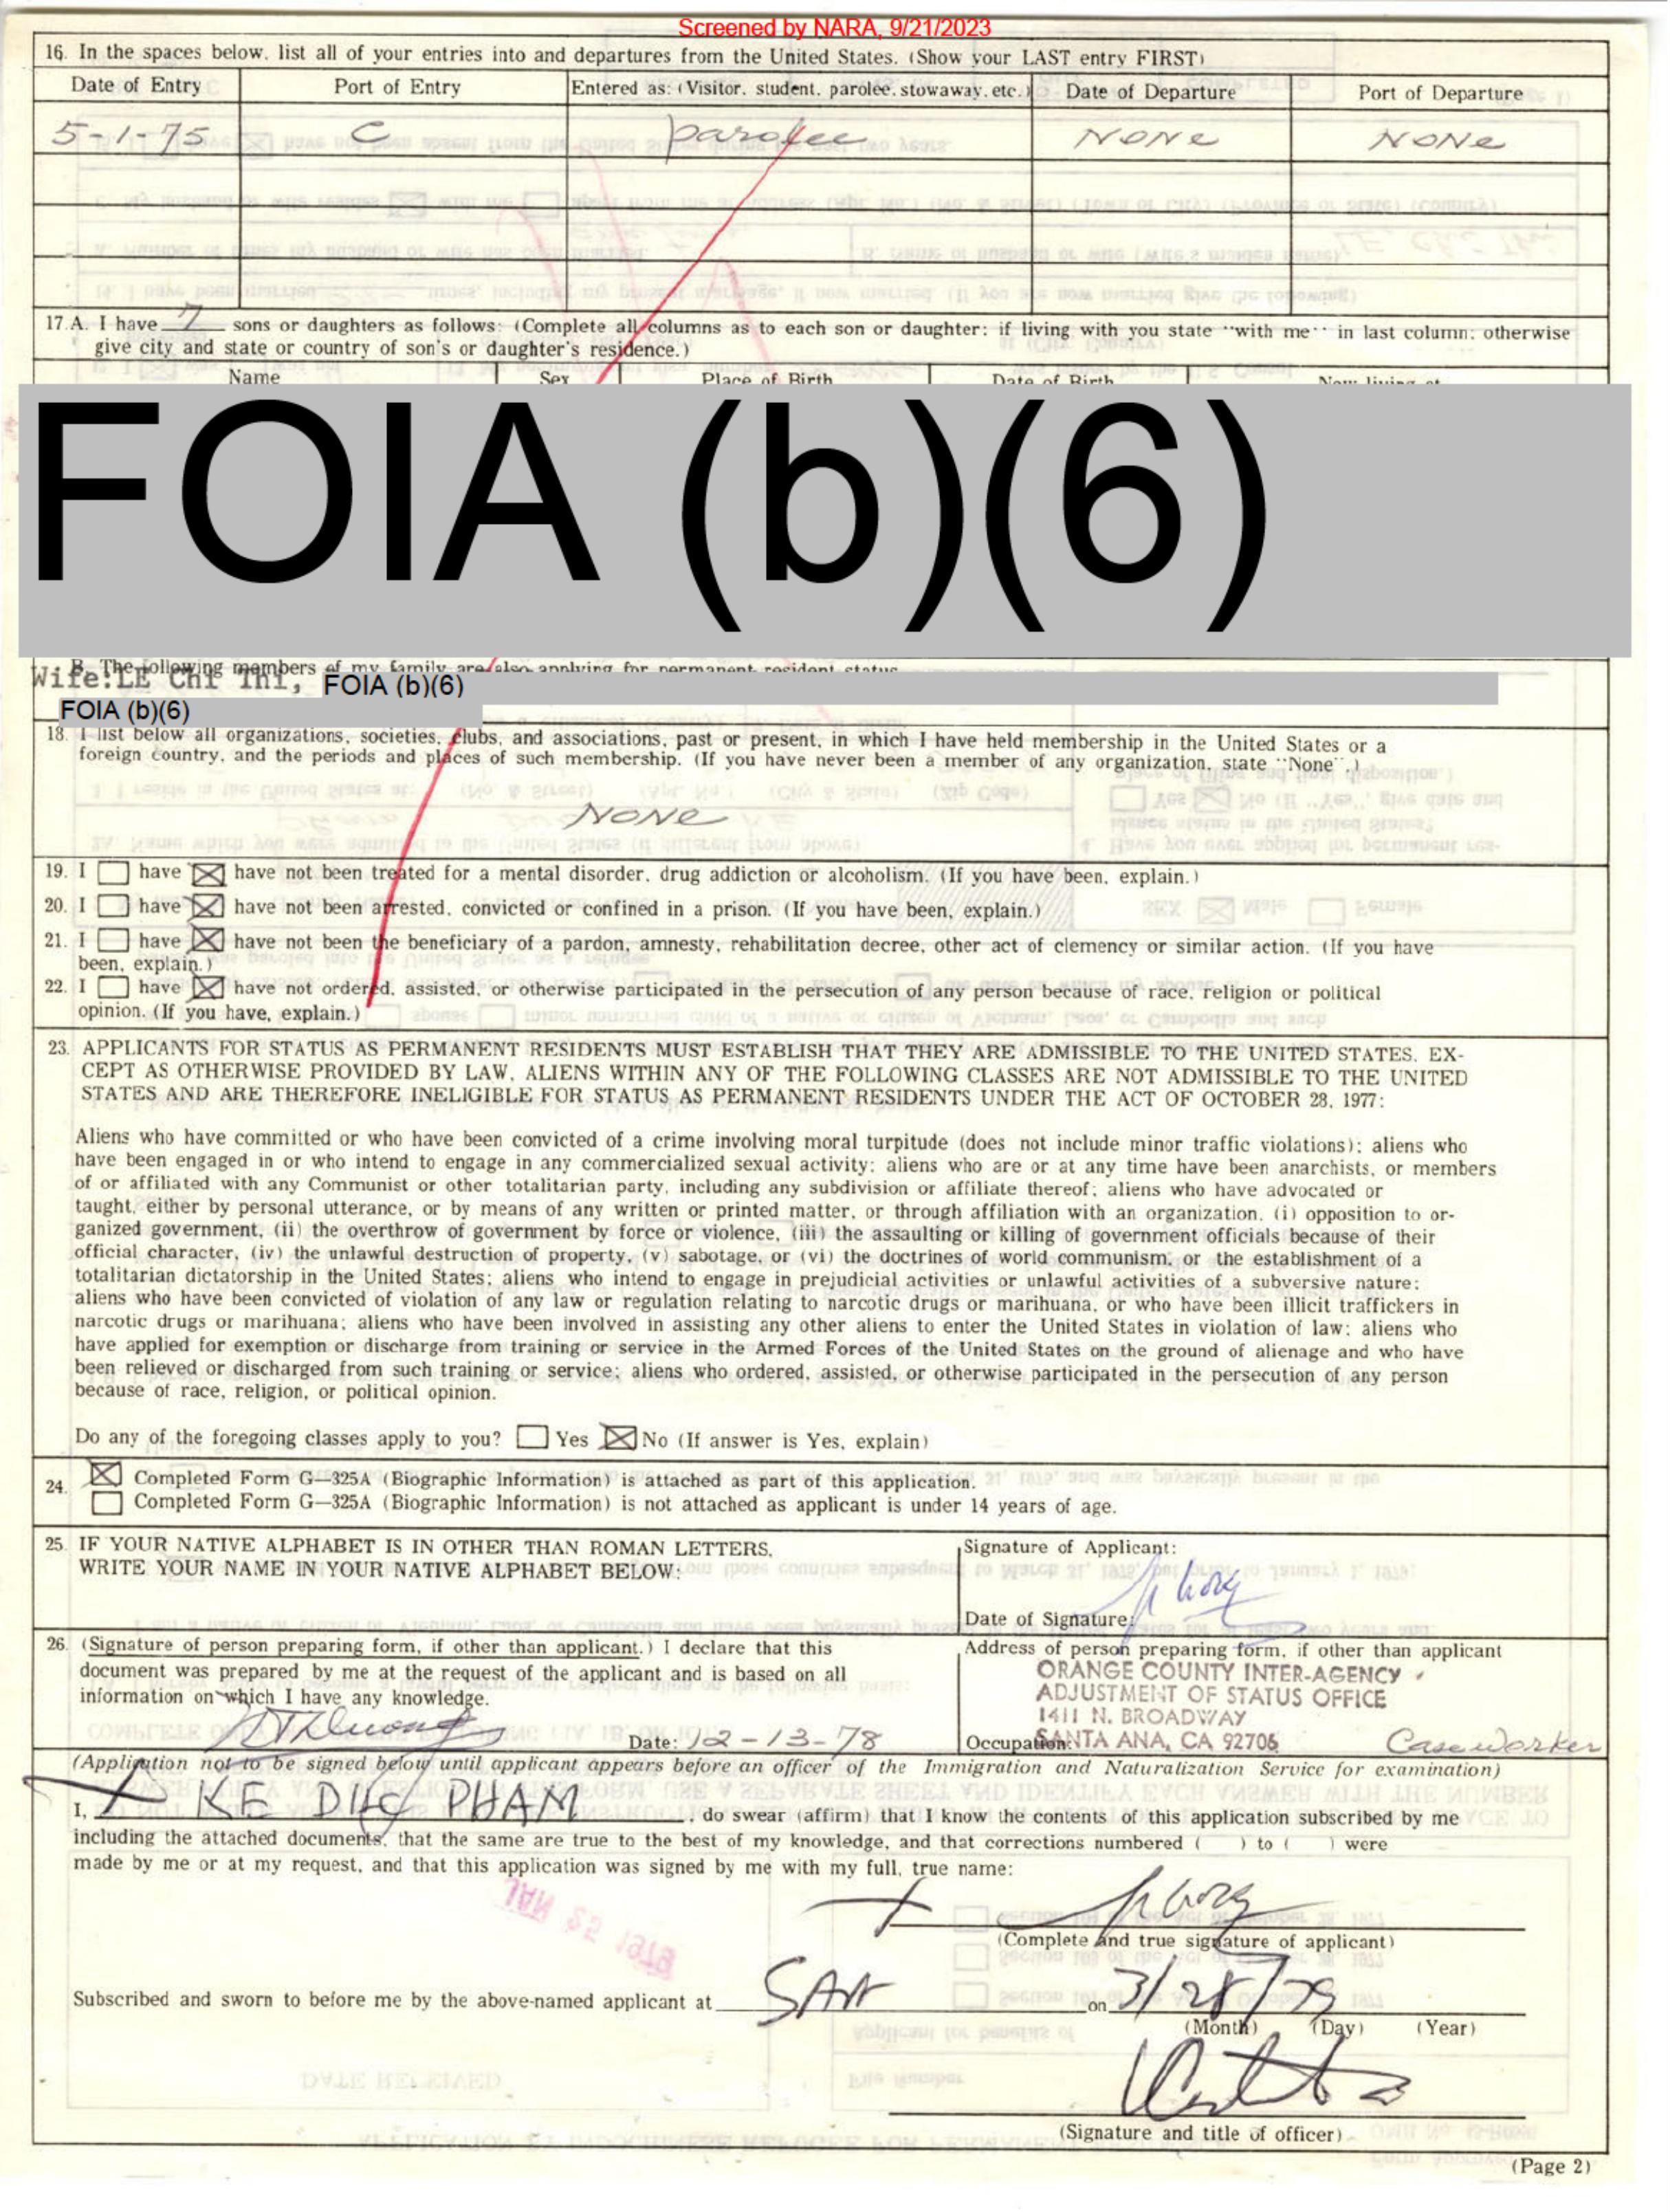 Screened by NARA, 9/21/2023
16. In the spaces below, list all of your entries into and departures from the United States. (Show your LAST entry FIRST)
Date of Entry Port of Entry Entered as: (Visitor, student, parolee, stowaway, etc.) Date of Departure Port of Departure
5-1-75 C parolee NONE NONE
17.A. I have 7 sons or daughters as follows: (Complete all columns as to each son or daughter; if living with you state "with me" in last column; otherwise
give city and state or country of son's or daughter's residence.)
Name Sex Place of Birth Date of Birth Now living at
FOIA (b)(6)
B. The following members of my family are also applying for permanent resident status
Wife:LE Chi Thi, FOIA (b)(6)
FOIA (b)(6)
18. I list below all organizations, societies, clubs, and associations, past or present, in which I have held membership in the United States or a
foreign country, and the periods and places of such membership. (If you have never been a member of any organization, state "None".)
NONE
19. I have have not been treated for a mental disorder, drug addiction or alcoholism. (If you have been, explain.)
20. I have have not been arrested, convicted or confined in a prison. (If you have been, explain.)
21. I have have not been the beneficiary of a pardon, amnesty, rehabilitation decree, other act of clemency or similar action. (If you have
been, explain.)
22. I have have not ordered, assisted, or otherwise participated in the persecution of any person because of race, religion or political
opinion. (If you have, explain.)
23. APPLICANTS FOR STATUS AS PERMANENT RESIDENTS MUST ESTABLISH THAT THEY ARE ADMISSIBLE TO THE UNITED STATES. EX-
CEPT AS OTHERWISE PROVIDED BY LAW, ALIENS WITHIN ANY OF THE FOLLOWING CLASSES ARE NOT ADMISSIBLE TO THE UNITED
STATES AND ARE THEREFORE INELIGIBLE FOR STATUS AS PERMANENT RESIDENTS UNDER THE ACT OF OCTOBER 28, 1977:
Aliens who have committed or who have been convicted of a crime involving moral turpitude (does not include minor traffic violations); aliens who
have been engaged in or who intend to engage in any commercialized sexual activity; aliens who are or at any time have been anarchists, or members
of or affiliated with any Communist or other totalitarian party, including any subdivision or affiliate thereof; aliens who have advocated or
taught, either by personal utterance, or by means of any written or printed matter, or through affiliation with an organization, (i) opposition to or-
ganized government, (ii) the overthrow of government by force or violence, (iii) the assaulting or killing of government officials because of their
official character, (iv) the unlawful destruction of property, (v) sabotage, or (vi) the doctrines of world communism, or the establishment of a
totalitarian dictatorship in the United States; aliens who intend to engage in prejudicial activities or unlawful activities of a subversive nature;
aliens who have been convicted of violation of any law or regulation relating to narcotic drugs or marihuana, or who have been illicit traffickers in
narcotic drugs or marihuana; aliens who have been involved in assisting any other aliens to enter the United States in violation of law; aliens who
have applied for exemption or discharge from training or service in the Armed Forces of the United States on the ground of alienage and who have
been relieved or discharged from such training or service; aliens who ordered, assisted, or otherwise participated in the persecution of any person
because of race, religion, or political opinion.
Do any of the foregoing classes apply to you? Yes No (If answer is Yes, explain)
24. Completed Form G-325A (Biographic Information) is attached as part of this application.
Completed Form G-325A (Biographic Information) is not attached as applicant is under 14 years of age.
25. IF YOUR NATIVE ALPHABET IS IN OTHER THAN ROMAN LETTERS,
WRITE YOUR NAME IN YOUR NATIVE ALPHABET BELOW:
Signature of Applicant:
Date of Signature:
26. (Signature of person preparing form, if other than applicant.) I declare that this
document was prepared by me at the request of the applicant and is based on all
information on which I have any knowledge.
Date: 12-13-78
Address of person preparing form, if other than applicant
ORANGE COUNTY INTER-AGENCY
ADJUSTMENT OF STATUS OFFICE
1411 N. BROADWAY
SANTA ANA, CA 92706
Occupation: Caseworker
(Application not to be signed below until applicant appears before an officer of the Immigration and Naturalization Service for examination)
I, KE DUC PHAM, do swear (affirm) that I know the contents of this application subscribed by me
including the attached documents, that the same are true to the best of my knowledge, and that corrections numbered ( ) to ( ) were
made by me or at my request, and that this application was signed by me with my full, true name:
(Complete and true signature of applicant)
Subscribed and sworn to before me by the above-named applicant at SAA on 3/28/79
(Month) (Day) (Year)
(Signature and title of officer)
(Page 2)